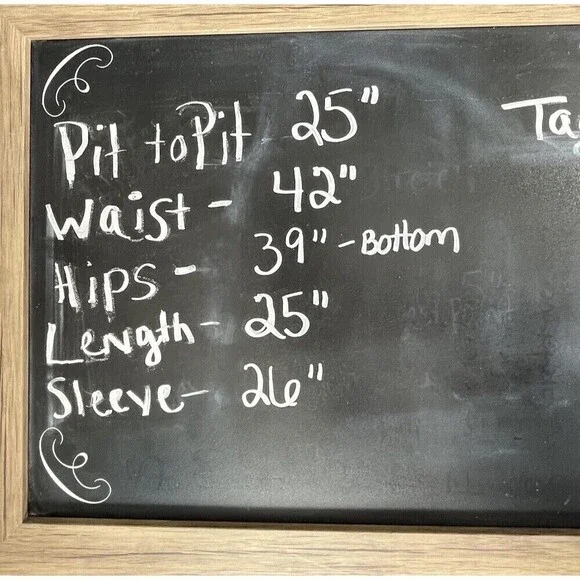 Pit to Pit 25"
Waist - 42"
Hips - 39" - Bottom
Length - 25"
Sleeve - 26"